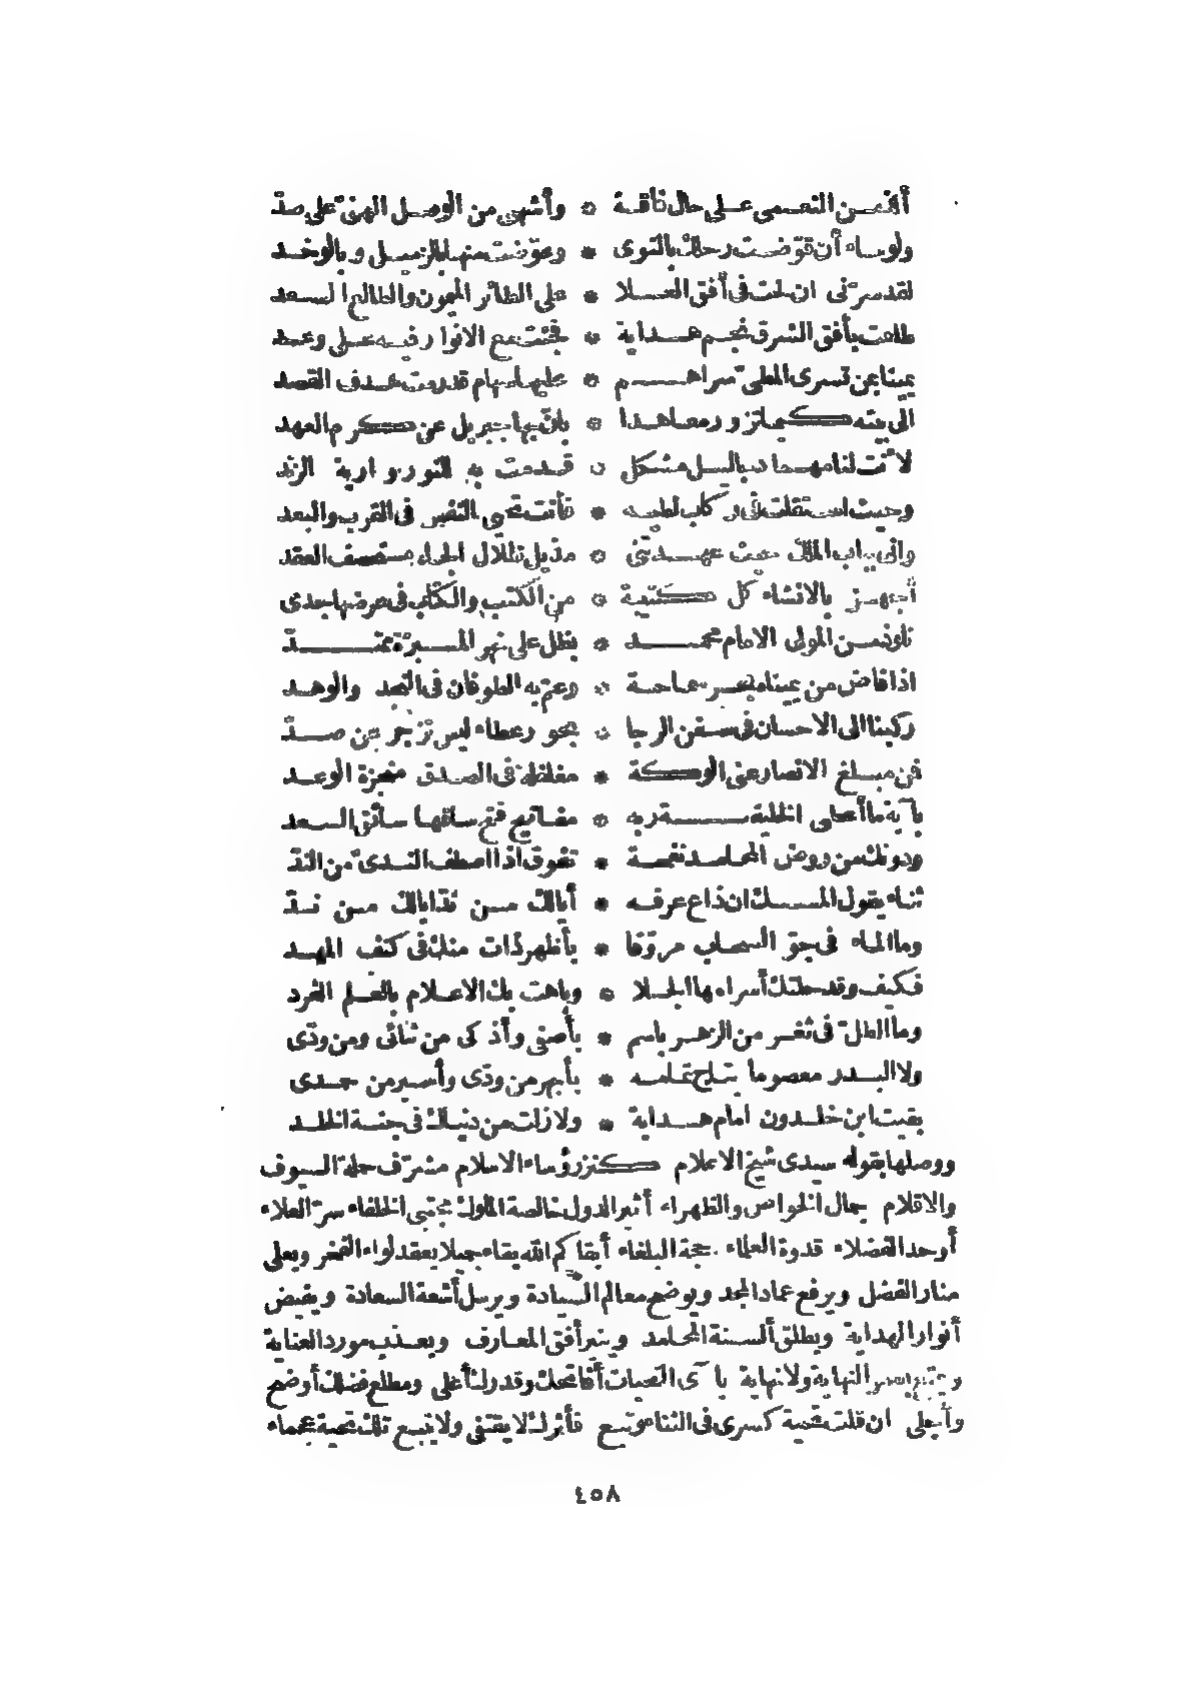 ألذ من النعمى على حال فاقة * وأشهى من الوصل الهنى على صد
ولو ساء أن قوضت رحلك بالنوى * وعوضت منها بالزميل وبالوخد
لقد سرنى ان لحت فى أفق العلا * على الطائر الميمون والطالع السعد
طلعت بأفق الشرق نجم هداية * فجئت مع الانوار فيه على وعد
يمينا بمن تسرى المطى سراهم * عليها سهام قد رمت هدف القصد
الى بيته كيما تزور معاهدا * بان بها جبريل عن كرم العهد
لانت لنا مهما دجا ليل مشكل * قدحت به للنور وارية الزند
وحيث استقلت فى ركاب لطيه * فأنت نجى النفس فى القرب والبعد
وانى بباب الملك حيث عهدتنى * مذيل ظلال الجاه مستحصف العقد
أجهز بالانشاء كل كتيبة * من الكتب والكتاب فى عرضها جندى
نلوذ من المولى الامام محمد * بظل على نهر المسرة ممتد
اذا فاض من يمناه بحر سماحة * وعم به الطوفان فى النجد والوهد
ركبنا الى الاحسان فى سفن الرجا * بحور عطاء ليس تزجر عن صد
فمن مبلغ الانصار عنى ألوكة * مغلغلة فى الصدق منجزة الوعد
بآية ما أعطى الخليفة ربه * مفاتيح فتح ساقها سائق السعد
ودونك من روض المحامد نفحة * تفوق اذا اصطف الندى من الند
ثناء يقول المسك ان ذاع عرفه * أيا لك من ند أيا لك من ند
وما الماء فى جو السحاب مروقا * بأطهر ذات منك فى كنف المهد
فكيف وقد حلتك أسراءها الحلا * وباهت بك الاعلام بالعلم الفرد
وما الطل فى ثغر من الزهر باسم * بأصفى وأذكى من ثنائى ومن ودى
ولا البدر معصوما بتاج تمامه * بأبهر من ودى وأسير من حمدى
بقيت ابن خلدون امام هداية * ولا زلت من دنياك فى جنة الخلد
ووصلها بقوله سيدى شيخ الاعلام كنز رؤساء الاسلام مشرف حملة السيوف
والاقلام جمال الخواص والظهراء أثير الدول خالصة الملوك مجتبى الخلفاء سر العلاء
أوحد الفضلاء قدوة العلماء حجة البلغاء أبقاكم الله بقاء جميلا يعقد لواء الفخر ويعلى
منار الفضل ويرفع عماد المجد ويوضح معالم السيادة ويرسل أشعة السعادة ويفيض
أنوار الهداية ويطلق ألسنة المحامد وينير أفق المعارف ويعذب مورد العناية
ويمتع بعمر النهاية ولا نهاية بأى التحيات أفاتحك وقدرك أعلى ومطلع فضلك أوضح
وأجلى ان قلت تحية كسرى فى الثناء وتبع فأثرك لا يقتفى ولا تبع تلك تحية عجماء
٤٥٨